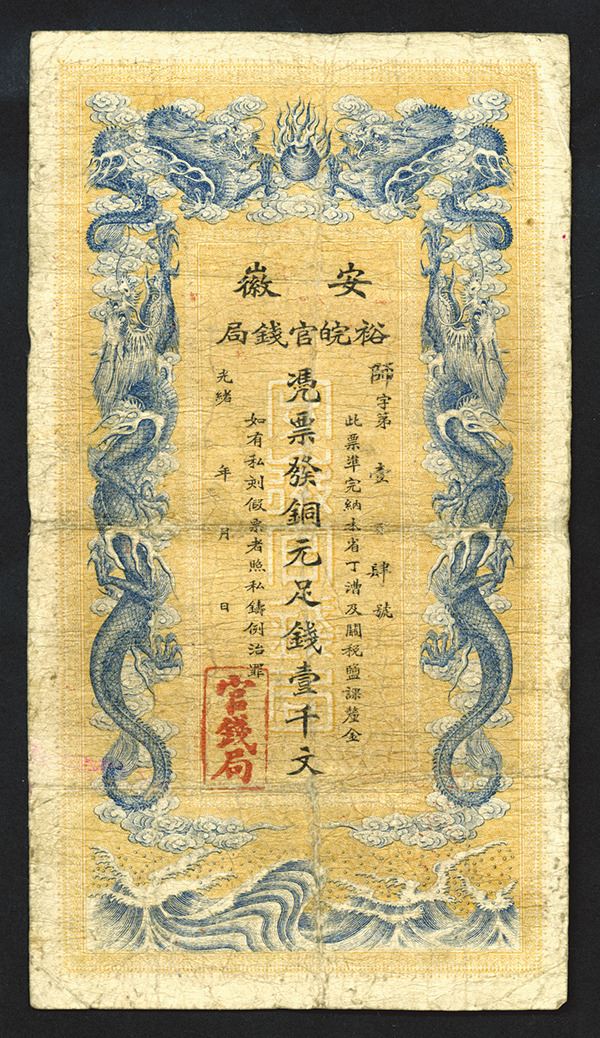 安徽
裕皖官錢局
字第壹肆號
此票準完納本省丁漕及關稅鹽課釐金
凴票發銅元足錢壹千文
如有私刻假票者照私鑄例治罪
光緒年月日
官錢局